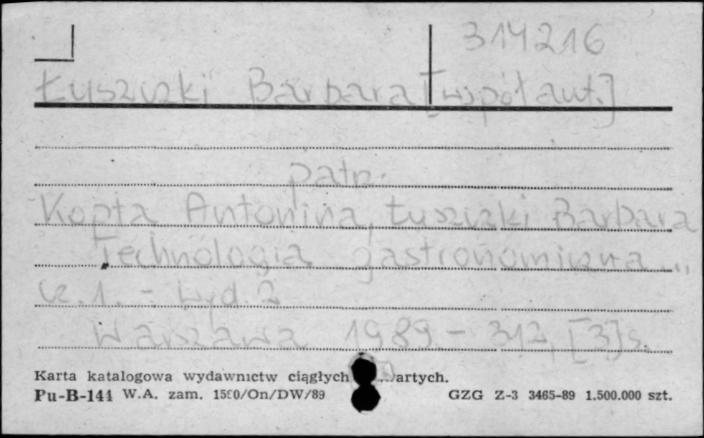 314216
Łuszczki Barbara [współaut.]
patrz.
Kopta Antonina, Łuszczki Barbara
Technologia gastronomiczna...
Cz. 1. - Wyd. 2
Warszawa 1989. - 312, [3] s.
Karta katalogowa wydawnictw ciągłych artych.
Pu-B-144 W.A. zam. 1590/On/DW/89 GZG Z-3 3465-89 1.500.000 szt.